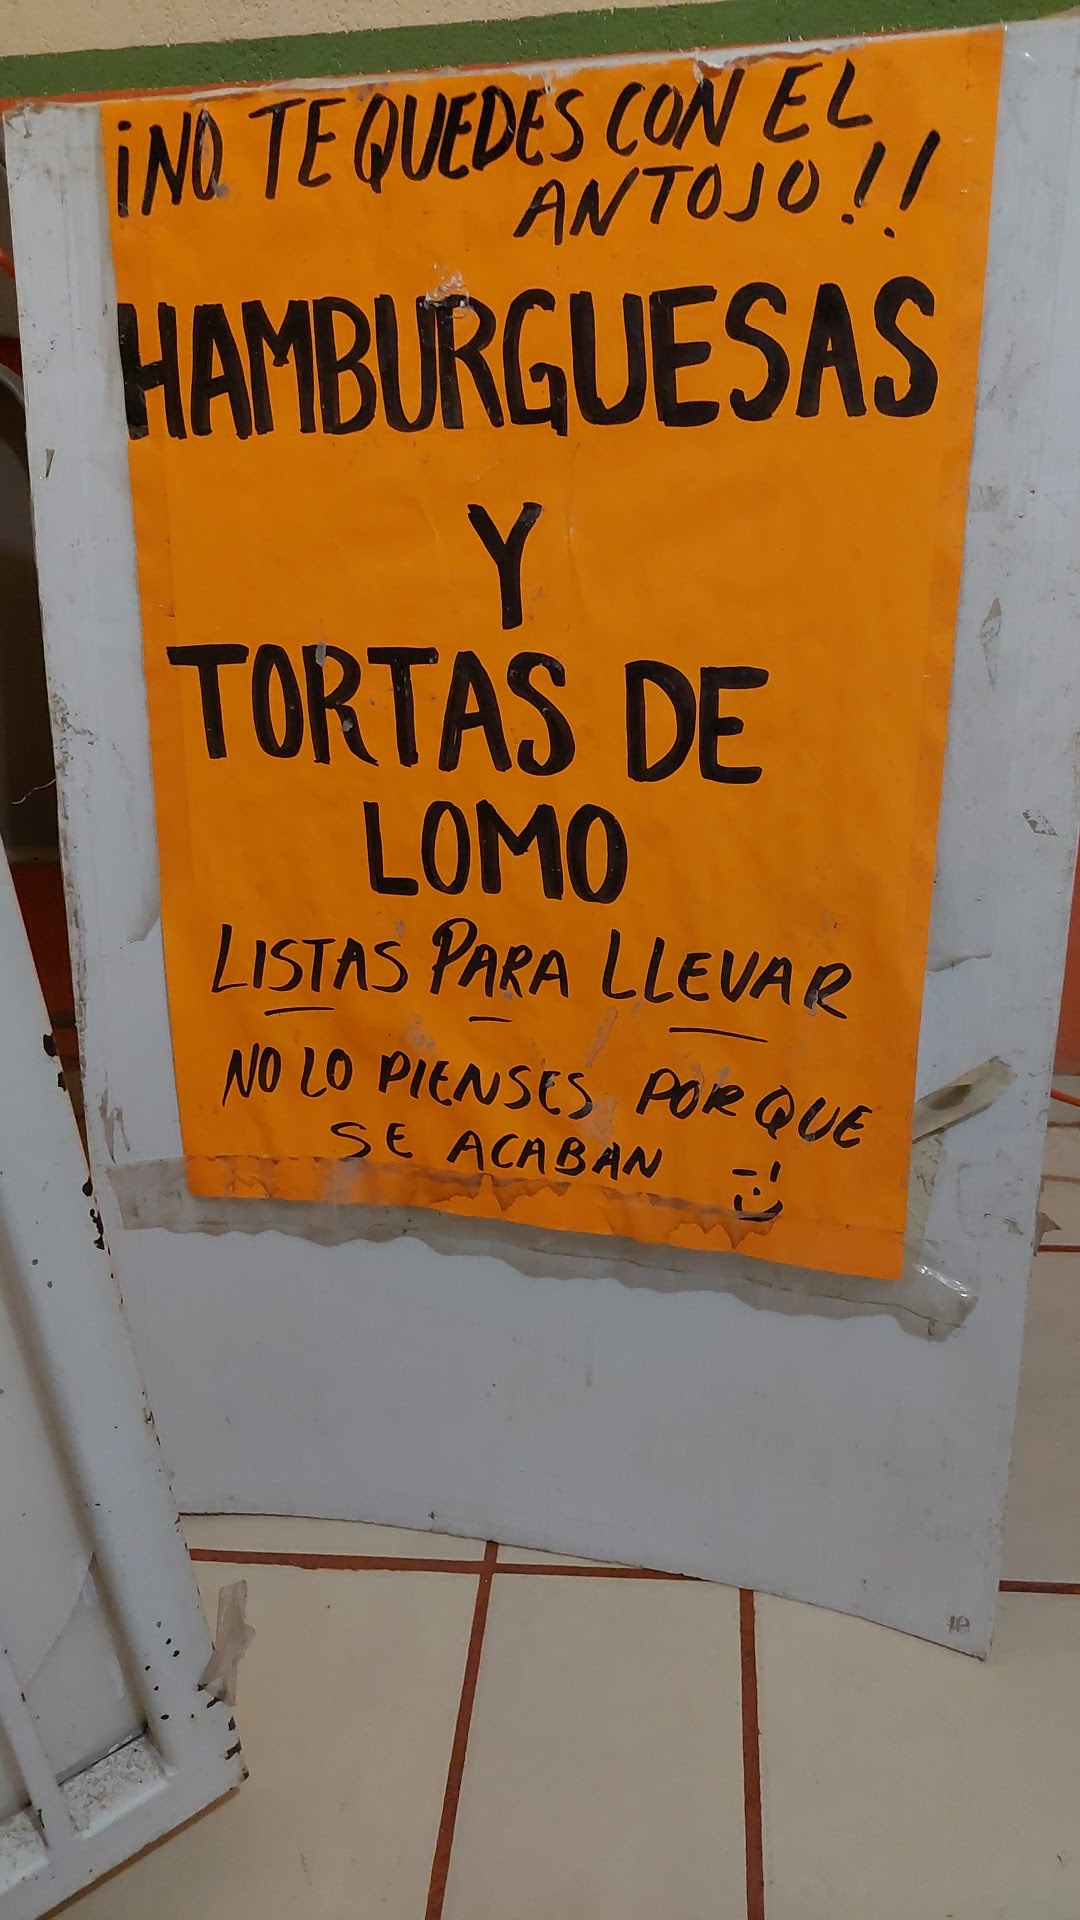 ¡NO TE QUEDES CON EL
ANTOJO!!
HAMBURGUESAS
Y
TORTAS DE
LOMO
LISTAS PARA LLEVAR
NO LO PIENSES PORQUE
SE ACABAN